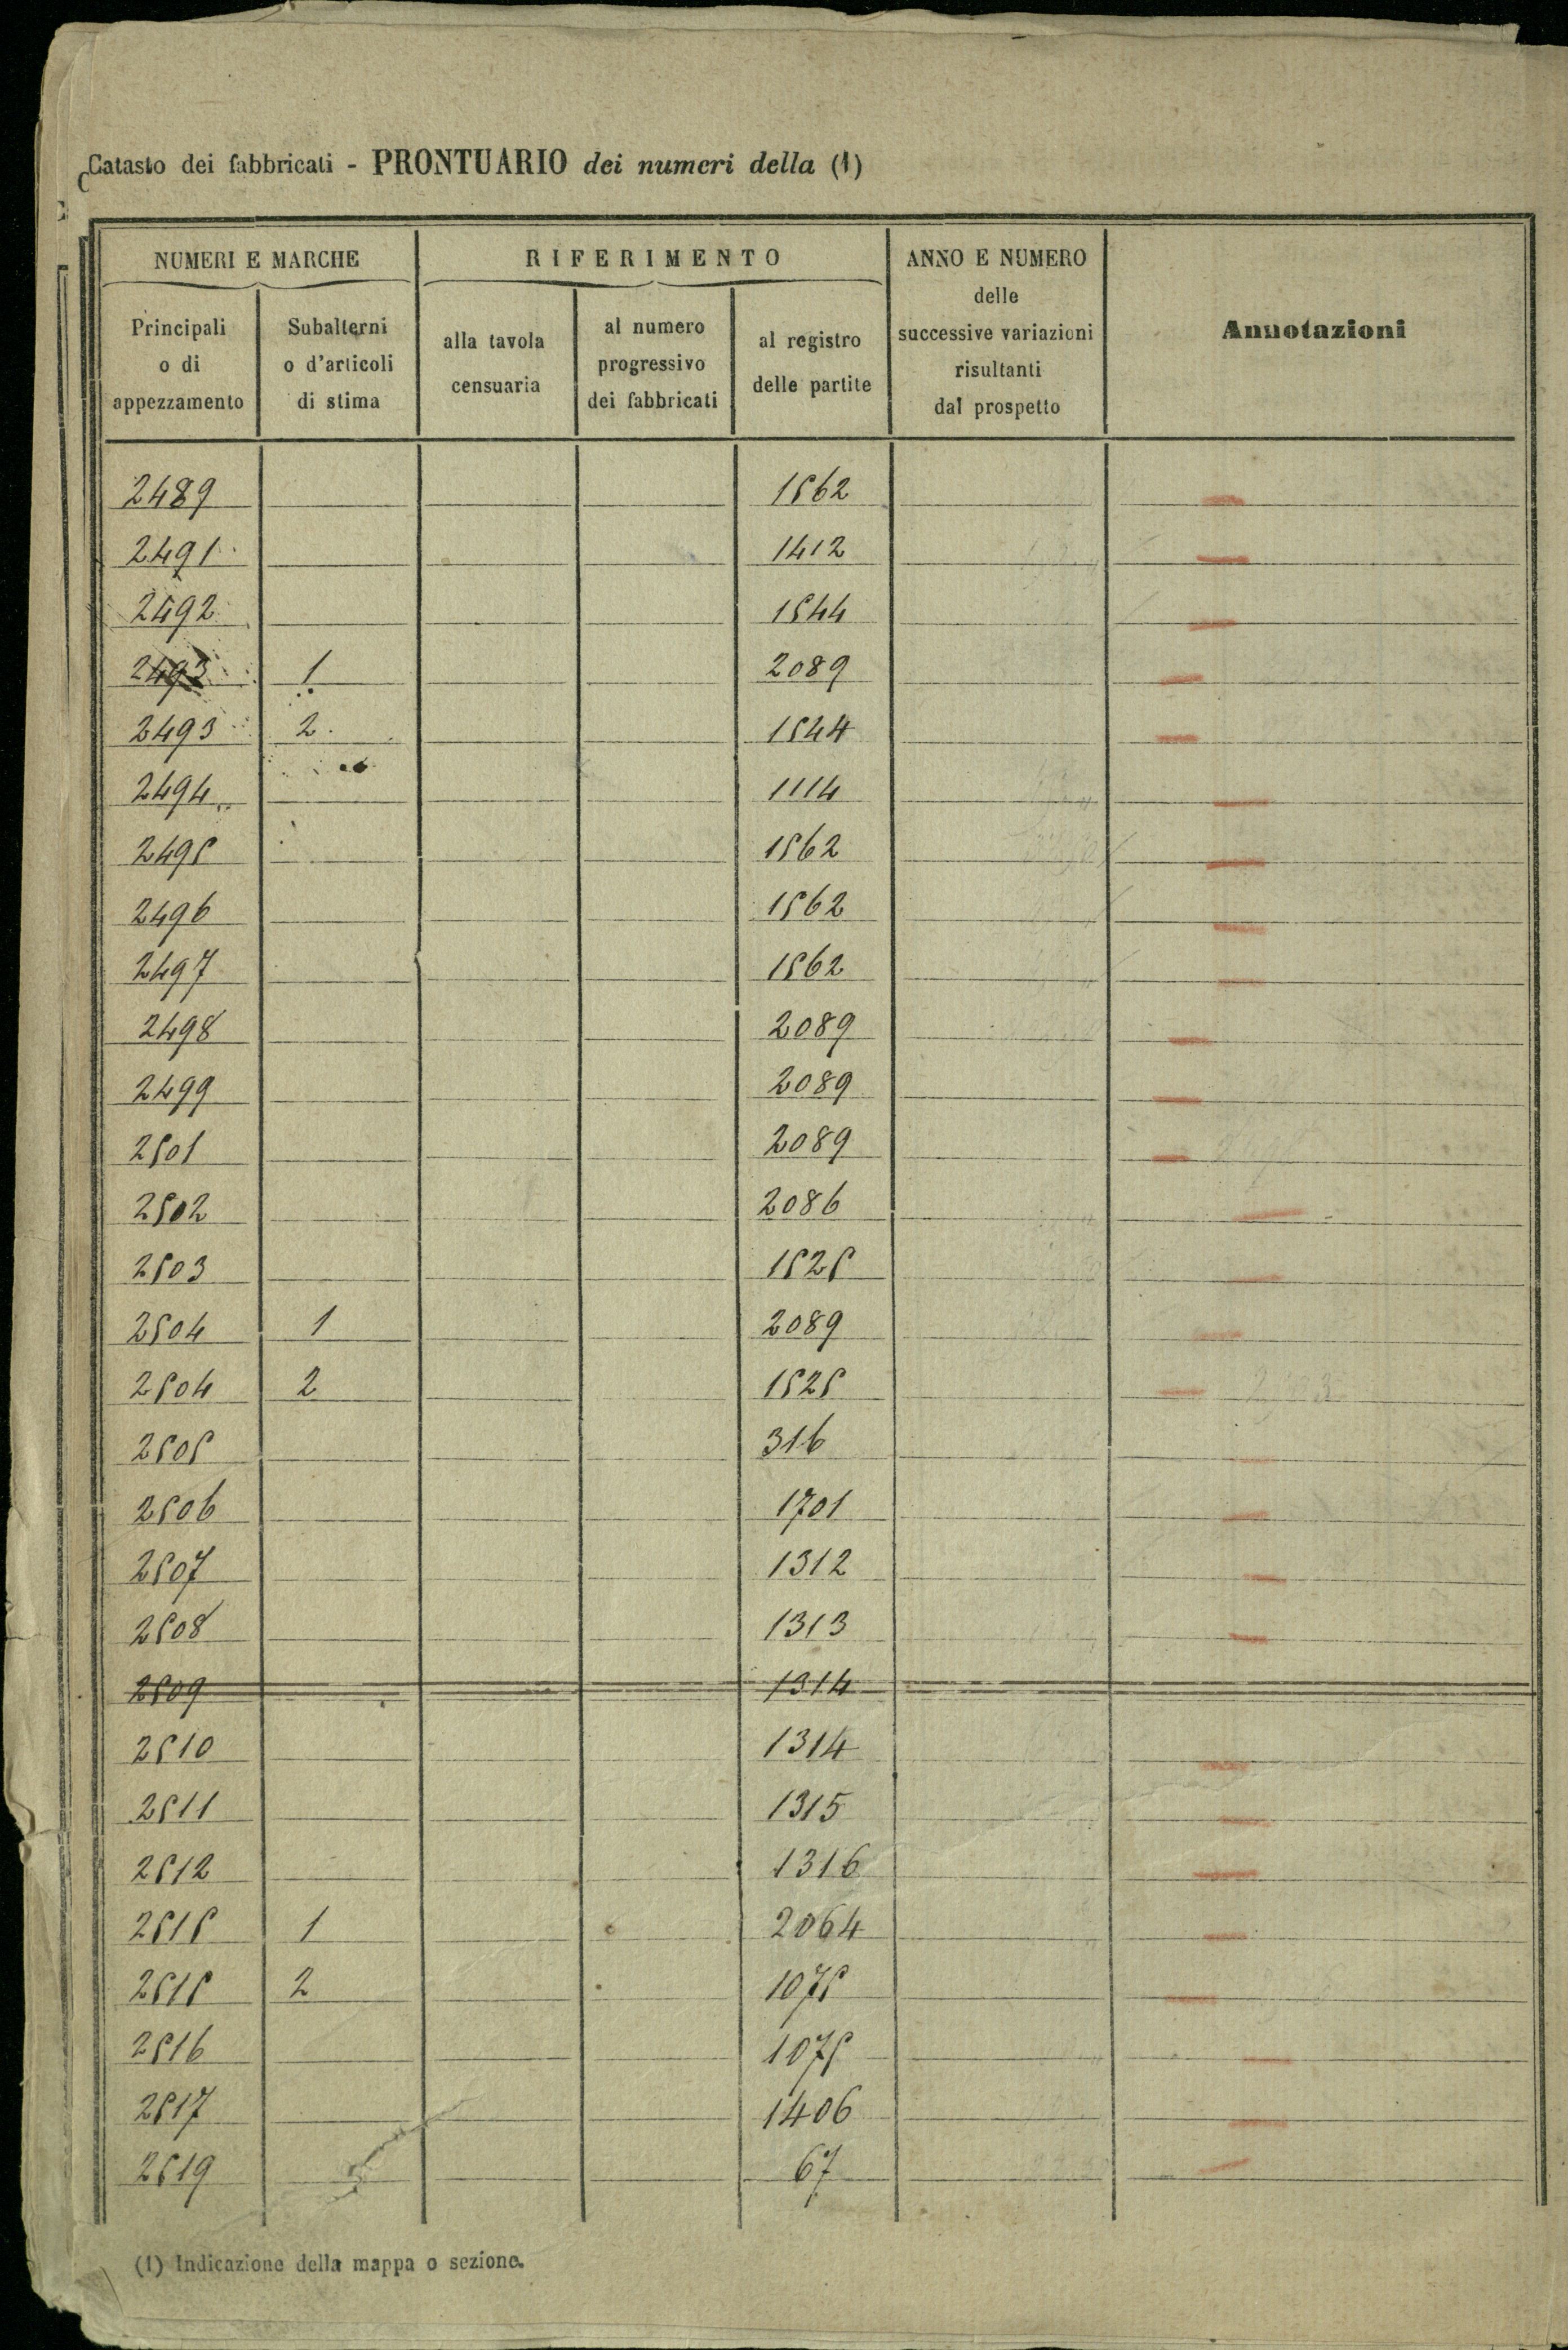 Catasto dei fabbricati - PRONTUARIO dei numeri della (1)
NUMERI E MARCHE
RIFERIMENTO
ANNO E NUMERO
delle
successive variazioni
risultanti
dal prospetto
Annotazioni
Principali
o di
appezzamento
Subalterni
o d'articoli
di stima
alla tavola
censuaria
al numero
progressivo
dei fabbricati
al registro
delle partite
2489 1562
2491 1412
2492 1544
2493 1 2089
2493 2 1544
2494 1114
2495 1562
2496 1562
2497 1562
2498 2089
2499 2089
2501 2089
2502 2086
2503 1525
2504 1 2089
2504 2 1525
2505 316
2506 1701
2507 1312
2508 1313
2509 1314
2510 1314
2511 1315
2512 1316
2515 1 2064
2515 2 1075
2516 1075
2517 1406
2519 67
(1) Indicazione della mappa o sezione.